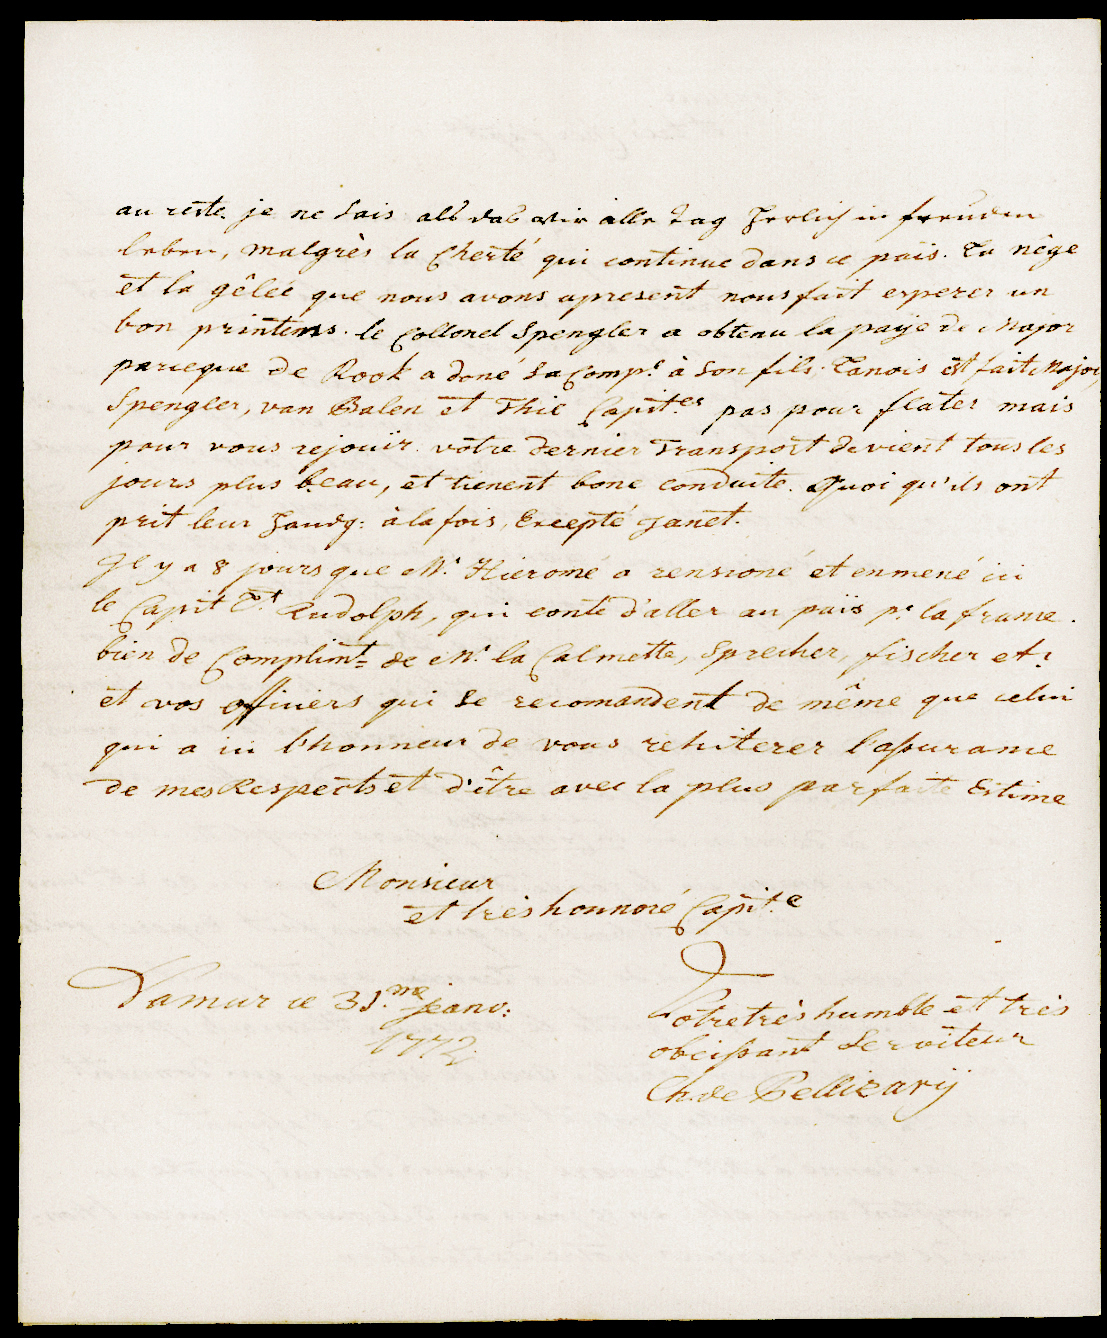 au reste je ne sais als das wir alle Tag Herlich in freuden
leben, malgrès la Cherté qui continue dans ce païs. La nêge
et la gêlée que nous avons apresent nous fait experer un
bon printems. le Collonel Spengler a obtenu la paÿe de Major
parceque De Rook a doné sa Comp.e à son fils. Tanois est fait Major
Spengler, van Balen et Thil Capit.es pas pour flater mais
pour vous rejouir votre dernier Transport devient tous les
jours plus beau, et tienent bone conduite. Quoi qu'ils ont
prit leur Handg: à la fois, Excepté Janet.
Il y a 8 jours que Mr. Hierome a rensioné et enmené ici
le Capit Lt. Rudolph, qui conte d'aller au païs pr. la france.
bien de Complimt. de Mr. la Calmette, Sprecher, fischer etc
et vos officiers qui se recomandent de même que celui
qui a ici l'honneur de vous rehiterer l'assurance
de mes Respects et d'être avec la plus parfaite Estime
Monsieur
et très honnoré Capit.e
Namur ce 31.me Jeanv:
1772
Votre très humble et très
obeissant Serviteur
Ch. de Pellizarij